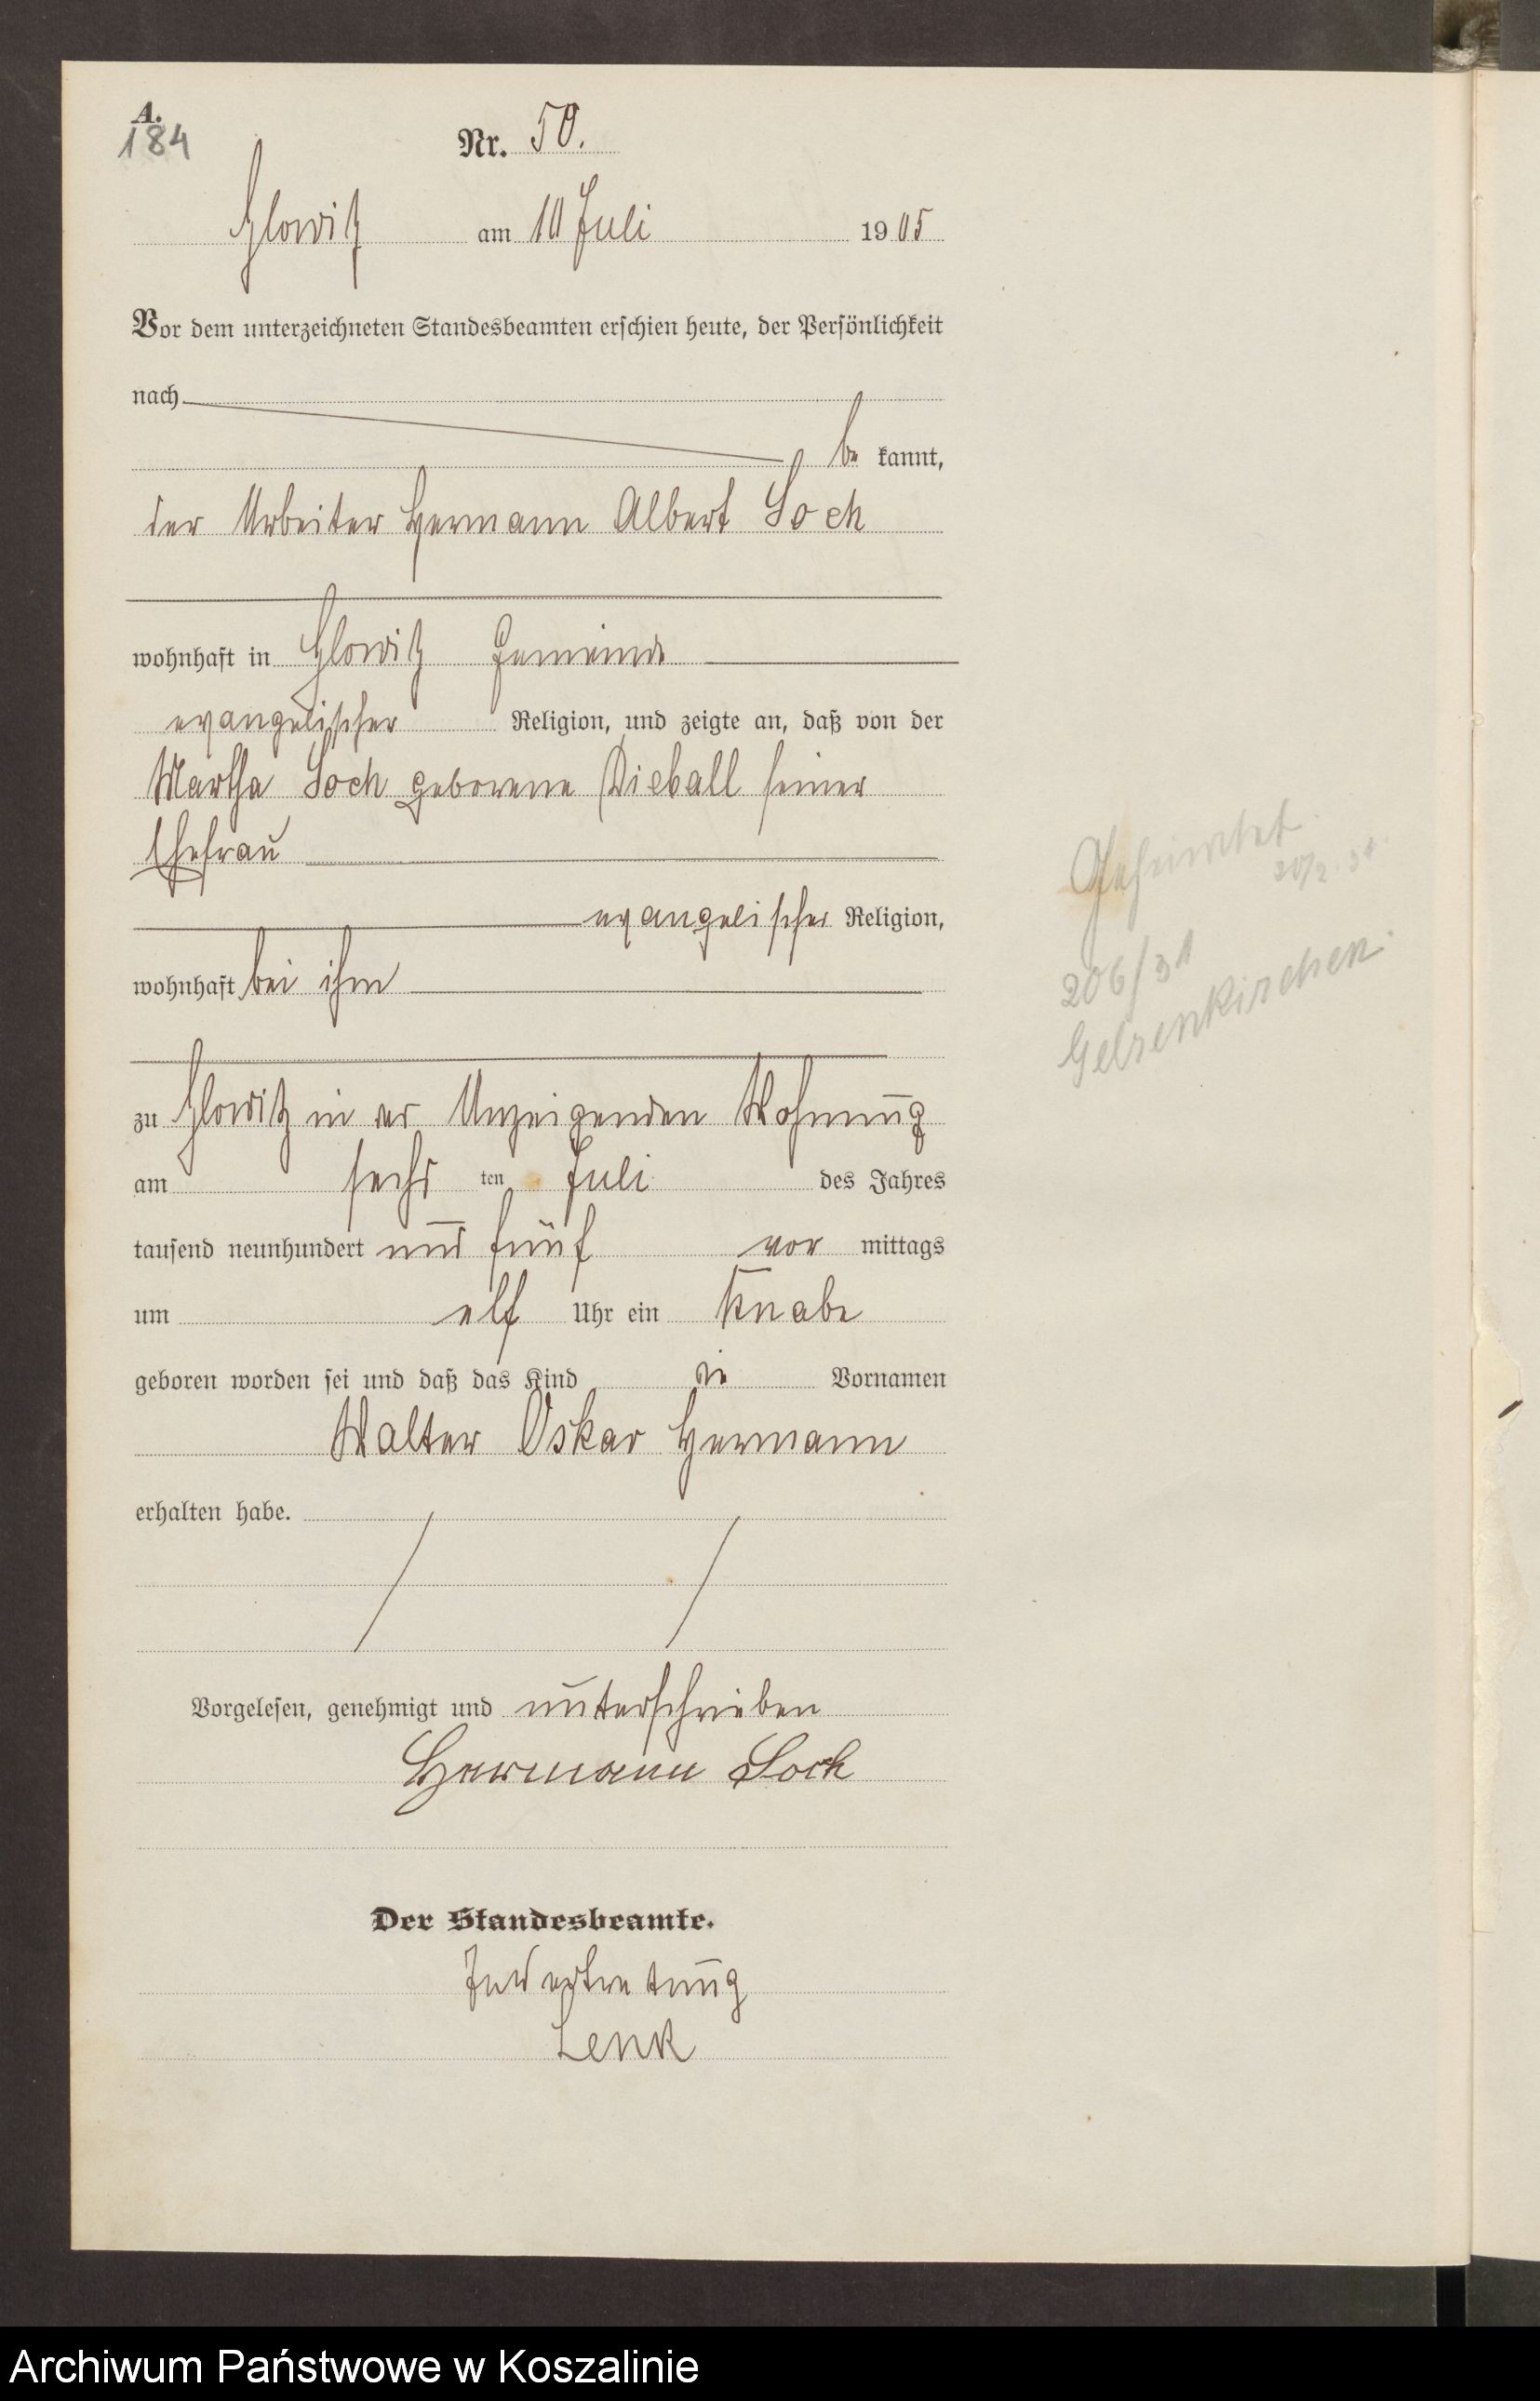 A.
184
Nr. 50.
Glowitz am 10 Juli 1905
Vor dem unterzeichneten Standesbeamten erschien heute, der Persönlichkeit
nach
be kannt,
der Arbeiter Hermann Albert Sock
wohnhaft in Glowitz Gemeinde
evangelischer Religion, und zeigte an, daß von der
Martha Sock geborene Dieball seiner
Ehefrau
evangelischer Religion,
wohnhaft bei ihm
zu Glowitz in der Anzeigenden Wohnung
am sechs ten Juli des Jahres
tausend neunhundert und fünf vor mittags
um elf Uhr ein Knabe
geboren worden sei und daß das Kind die Vornamen
Walter Oskar Hermann
erhalten habe.
Vorgelesen, genehmigt und unterschrieben
Hermann Sock
Der Standesbeamte.
In Vertretung
Lenk
Geheiratet
206/31
Gelsenkirchen.
Archiwum Państwowe w Koszalinie